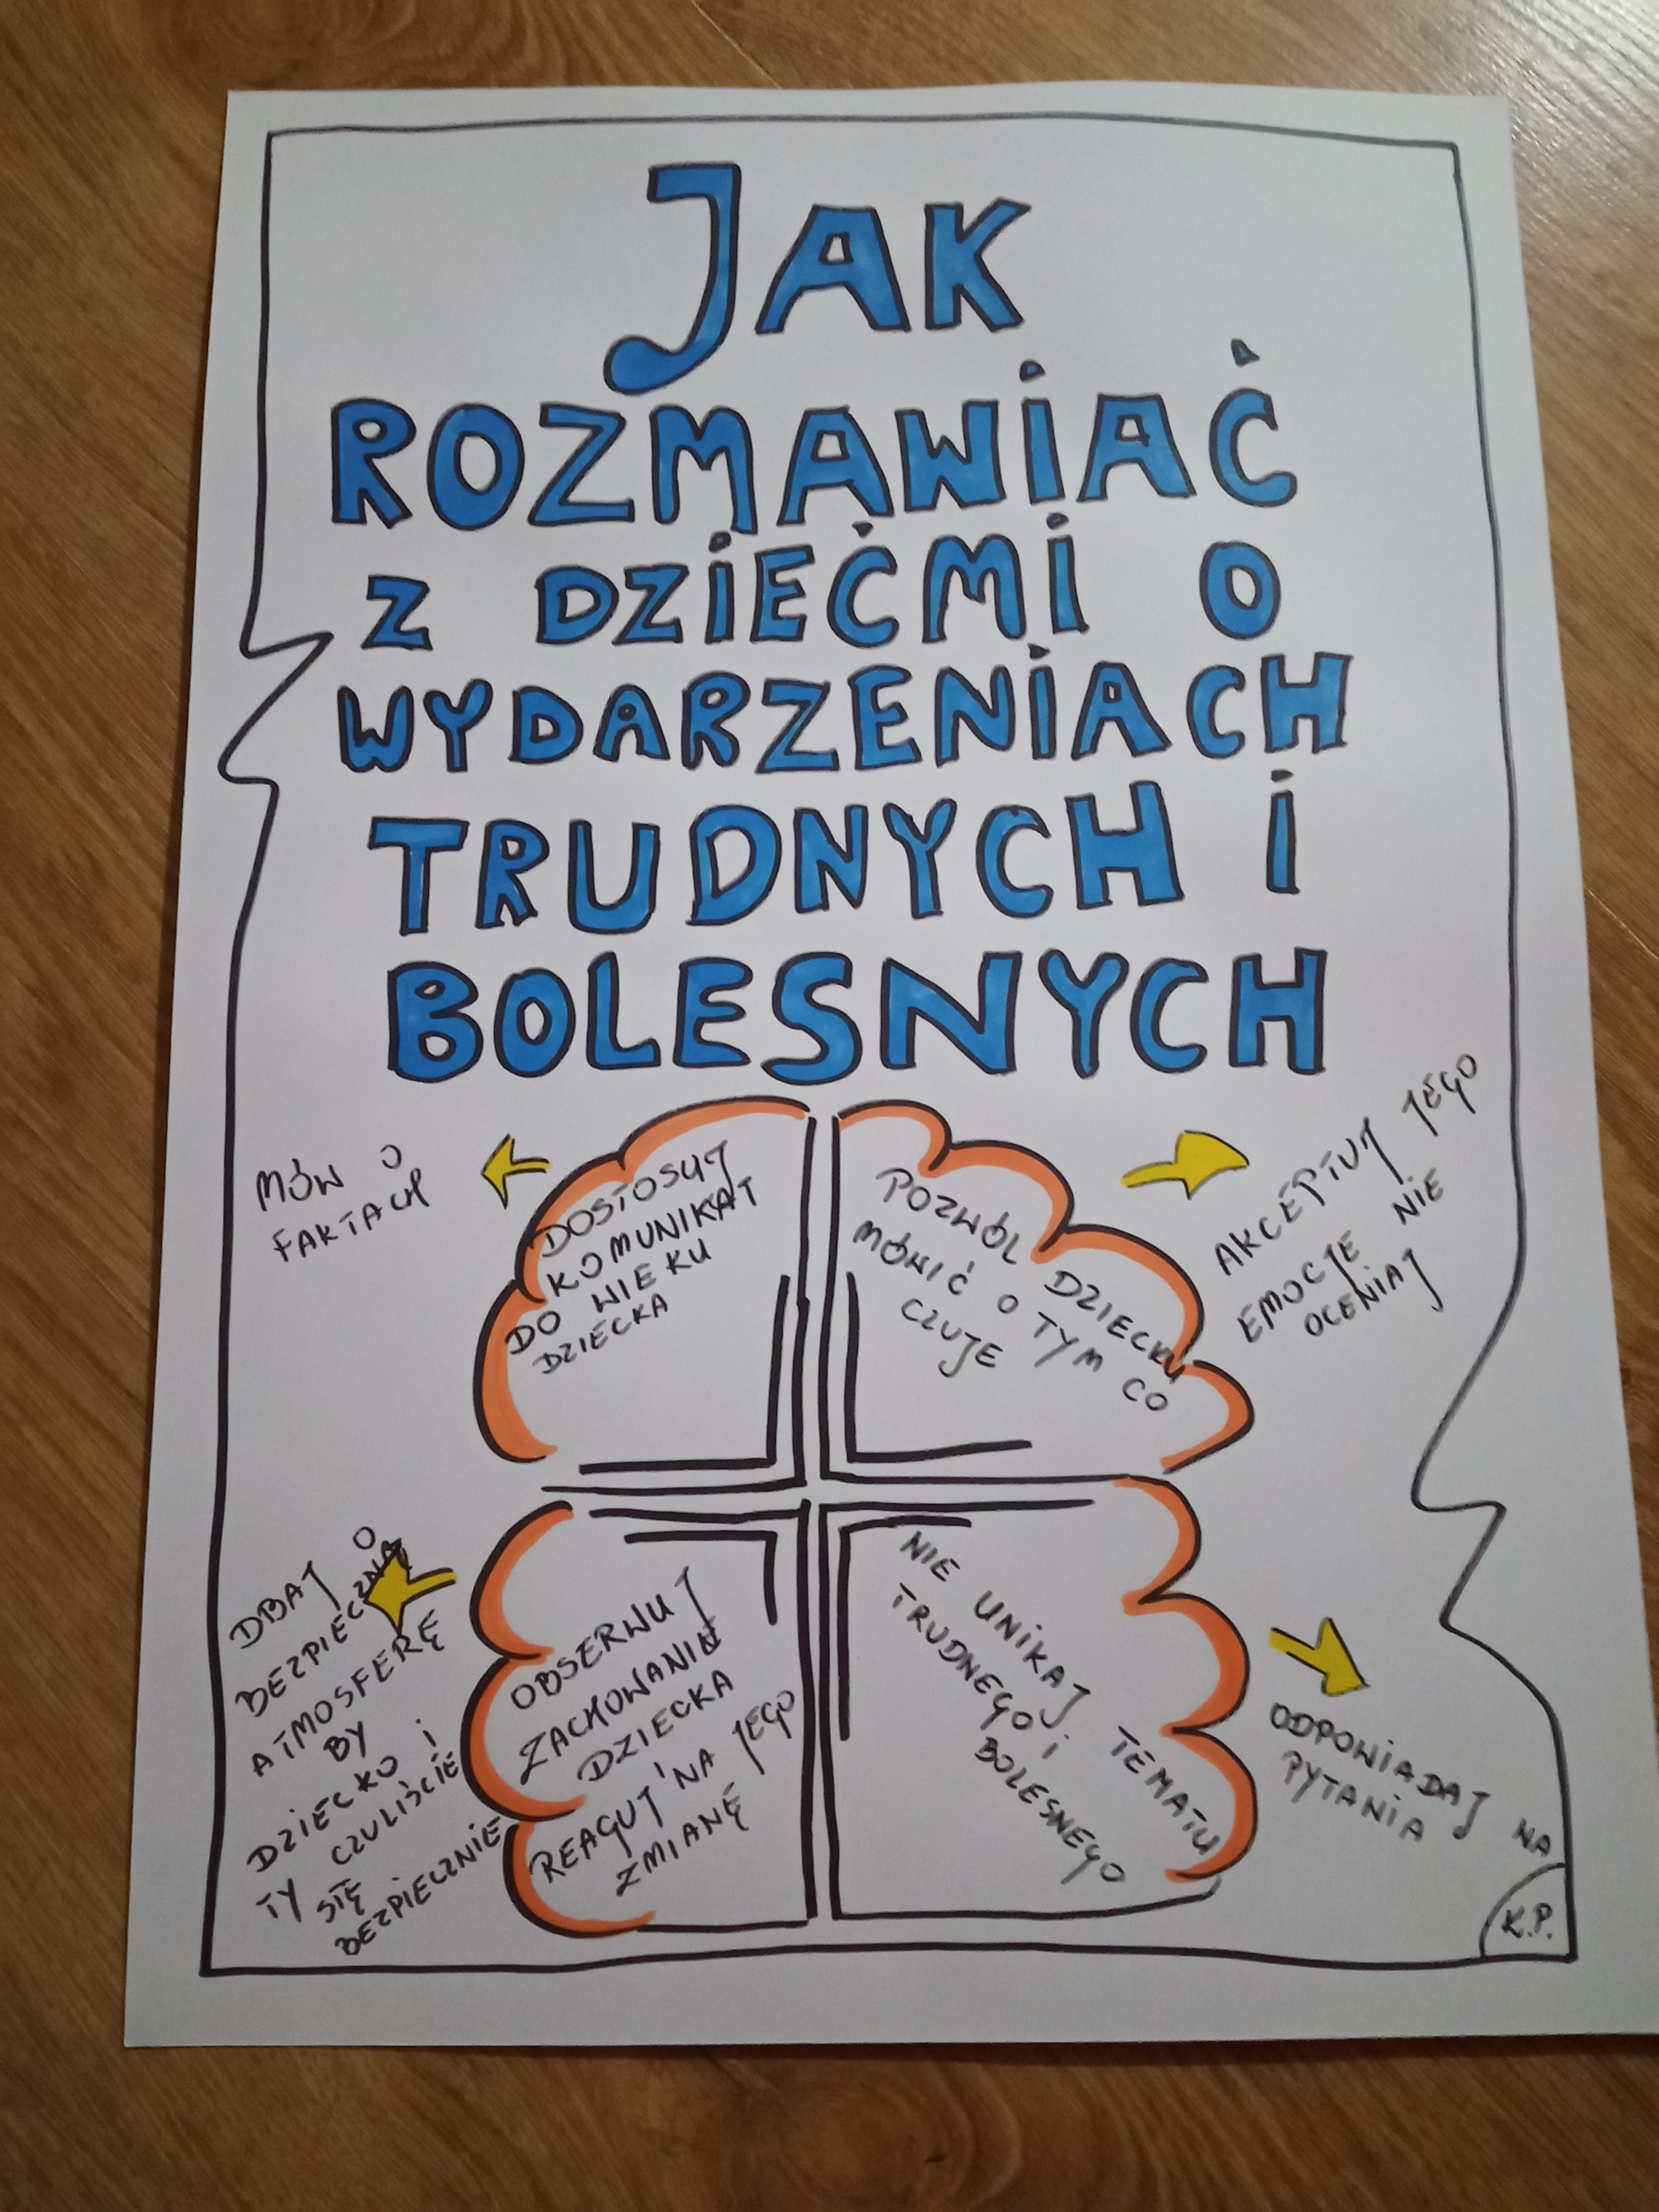 JAK
ROZMAWIAĆ
Z DZIEĆMI O
WYDARZENIACH
TRUDNYCH I
BOLESNYCH
MÓW O
FAKTACH
DOSTOSUJ
KOMUNIKAT
DO WIEKU
DZIECKA
POZWÓL DZIECKU
MÓWIĆ O TYM CO
CZUJE
AKCEPTUJ JEGO
EMOCJE NIE
OCENIAJ
DBAJ O
BEZPIECZNĄ
ATMOSFERĘ
BY
DZIECKO I
TY CZULIŚCIE
SIĘ
BEZPIECZNIE
OBSERWUJ
ZACHOWANIE
DZIECKA
REAGUJ NA JEGO
ZMIANĘ
NIE UNIKAJ TEMATU
TRUDNEGO I
BOLESNEGO
ODPOWIADAJ NA
PYTANIA
K.P.